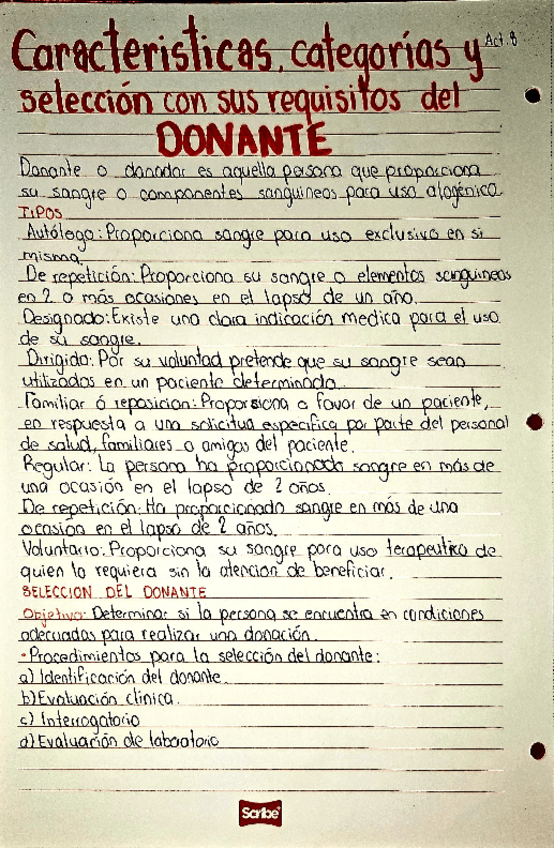 Act. 8
Caracteristicas, categorías y
selección con sus requisitos del
DONANTE
Donante o donador es aquella persona que proporciona
su sangre o componentes sanguineos para uso alogénico.
TIPOS
Autólogo: Proporciona sangre para uso exclusivo en si
misma.
De repetición: Proporciona su sangre o elementos sanguineos
en 2 o más ocasiones en el lapso de un año.
Designado: Existe una clara indicación medica para el uso
de su sangre.
Dirigido: Por su voluntad pretende que su sangre sean
utilizados en un paciente determinado.
Familiar ó reposicion: Proporsiona a favor de un paciente,
en respuesta a una solicitud especifica por parte del personal
de salud, familiares o amigos del paciente.
Regular: La persona ha proporcionado sangre en más de
una ocasión en el lapso de 2 años.
De repetición: Ha proporcionado sangre en más de una
ocasión en el lapso de 2 años.
Voluntario: Proporciona su sangre para uso terapeutico de
quien lo requiera sin la atencion de beneficiar.
SELECCION DEL DONANTE
Objetivo: Determinar si la persona se encuentra en condiciones
adecuadas para realizar una donación.
• Procedimientos para la selección del donante:
a) Identificación del donante.
b) Evaluación clinica.
c) Interrogatorio
d) Evaluación de laboratorio
Scribe